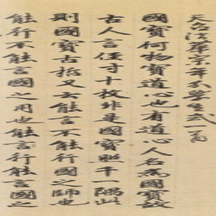 天台法華宗年分學生式一首
國寶何物寶道心也有道心人名為國寶故
古人言徑寸十枚非是國寶照千一隅此
則國寶古哲又云能言不能行國之師也
能行不能言國之用也能行能言國之